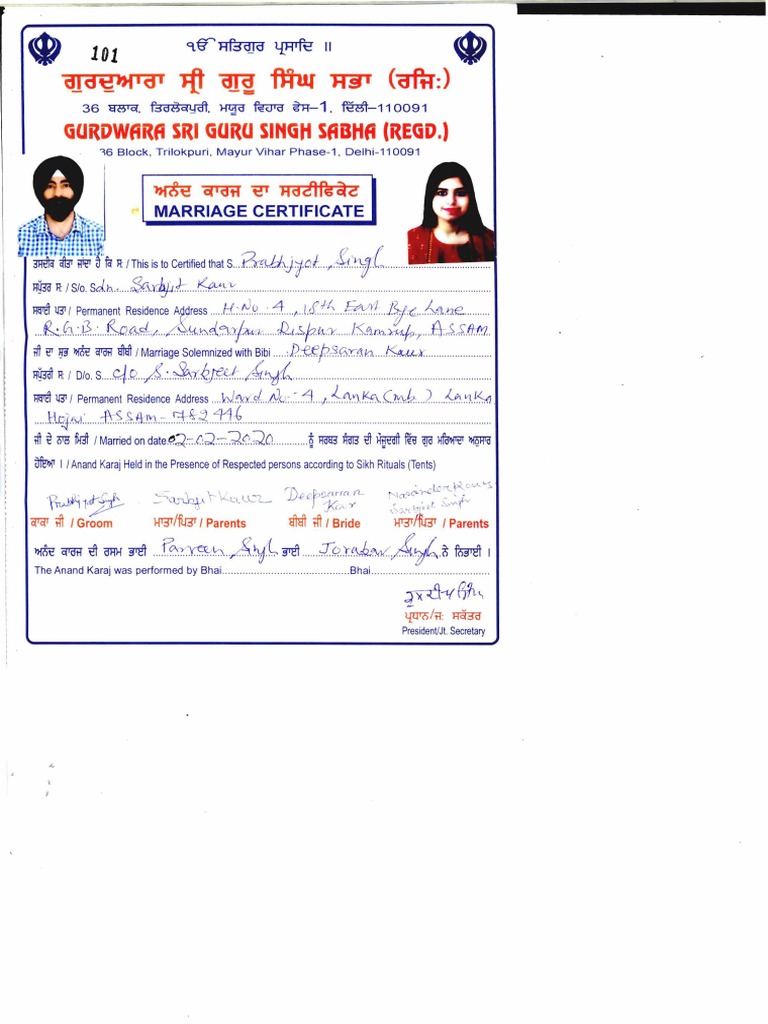 101
ੴ ਸਤਿਗੁਰ ਪ੍ਰਸਾਦਿ ॥
ਗੁਰਦੁਆਰਾ ਸ੍ਰੀ ਗੁਰੂ ਸਿੰਘ ਸਭਾ (ਰਜਿ:)
36 ਬਲਾਕ, ਤਿਰਲੋਕਪੁਰੀ, ਮਯੂਰ ਵਿਹਾਰ ਫੇਸ-1, ਦਿੱਲੀ-110091
GURDWARA SRI GURU SINGH SABHA (REGD.)
36 Block, Trilokpuri, Mayur Vihar Phase-1, Delhi-110091
ਅਨੰਦ ਕਾਰਜ ਦਾ ਸਰਟੀਫਿਕੇਟ
MARRIAGE CERTIFICATE
ਤਸਦੀਕ ਕੀਤਾ ਜਾਂਦਾ ਹੈ ਕਿ ਸ: / This is to Certified that S. Prabhjyot Singh
ਸਪੁੱਤਰ ਸ: / S/o. Sdn. Sarbjit Kaur
ਸਥਾਈ ਪਤਾ / Permanent Residence Address H.No. 4, 18th East Bye Lane
R.G.B. Road, Sundarpur Dispur Kamrup, ASSAM
ਜੀ ਦਾ ਸ਼ੁਭ ਅਨੰਦ ਕਾਰਜ ਬੀਬੀ / Marriage Solemnized with Bibi Deepsaran Kaur
ਸਪੁੱਤਰੀ ਸ: / D/o. S. C/o S. Sarbjeet Singh
ਸਥਾਈ ਪਤਾ / Permanent Residence Address Ward No.-4, Lanka (mb) Lanka
Hojai ASSAM-782446
ਜੀ ਦੇ ਨਾਲ ਮਿਤੀ / Married on date 02-02-2020 ਨੂੰ ਸਰਬਤ ਸੰਗਤ ਦੀ ਮੌਜੂਦਗੀ ਵਿੱਚ ਗੁਰ ਮਰਿਆਦਾ ਅਨੁਸਾਰ
ਹੋਇਆ। / Anand Karaj Held in the Presence of Respected persons according to Sikh Rituals (Tents)
Prabhjyot Singh Sarbjit Kaur Deepsaran Kaur Narinder Kaur Sarbjeet Singh
ਕਾਕਾ ਜੀ / Groom ਮਾਤਾ/ਪਿਤਾ / Parents ਬੀਬੀ ਜੀ / Bride ਮਾਤਾ/ਪਿਤਾ / Parents
ਅਨੰਦ ਕਾਰਜ ਦੀ ਰਸਮ ਭਾਈ Parveen Singh ਭਾਈ Jorabar Singh ਨੇ ਨਿਭਾਈ।
The Anand Karaj was performed by Bhai Bhai
ਪ੍ਰਧਾਨ/ਜ: ਸਕੱਤਰ
President/Jt. Secretary